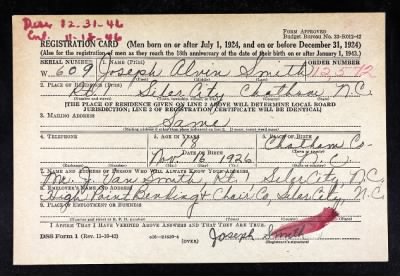 12-31-46
11-18-46
Form Approved
Budget Bureau No. 33-R012-42
REGISTRATION CARD (Men born on or after July 1, 1924, and on or before December 31, 1924)
(Also for the registration of men as they reach the 18th anniversary of the date of their birth on or after January 1, 1943.)
SERIAL NUMBER 1. NAME (Print) ORDER NUMBER
W 609 Joseph Alvin Smith 12,572
(First) (Middle) (Last)
2. PLACE OF RESIDENCE (Print)
Siler City Chatham N.C.
[THE PLACE OF RESIDENCE GIVEN ON LINE 2 ABOVE WILL DETERMINE LOCAL BOARD
JURISDICTION; LINE 2 OF REGISTRATION CERTIFICATE WILL BE IDENTICAL]
3. MAILING ADDRESS
Same
4. TELEPHONE 5. AGE IN YEARS 6. PLACE OF BIRTH
18 Chatham Co.
DATE OF BIRTH
Nov. 16 1926 N.C.
7. NAME AND ADDRESS OF PERSON WHO WILL ALWAYS KNOW YOUR ADDRESS
Mr. J. Van Smith, Rt. 1 Siler City, N.C.
8. EMPLOYER'S NAME AND ADDRESS
High Point Bending & Chair Co, Siler City, N.C.
9. PLACE OF EMPLOYMENT OR BUSINESS
I AFFIRM THAT I HAVE VERIFIED ABOVE ANSWERS AND THAT THEY ARE TRUE.
DSS Form 1 (Rev. 11-16-42) (OVER) Joseph Smith
(Registrant's signature)